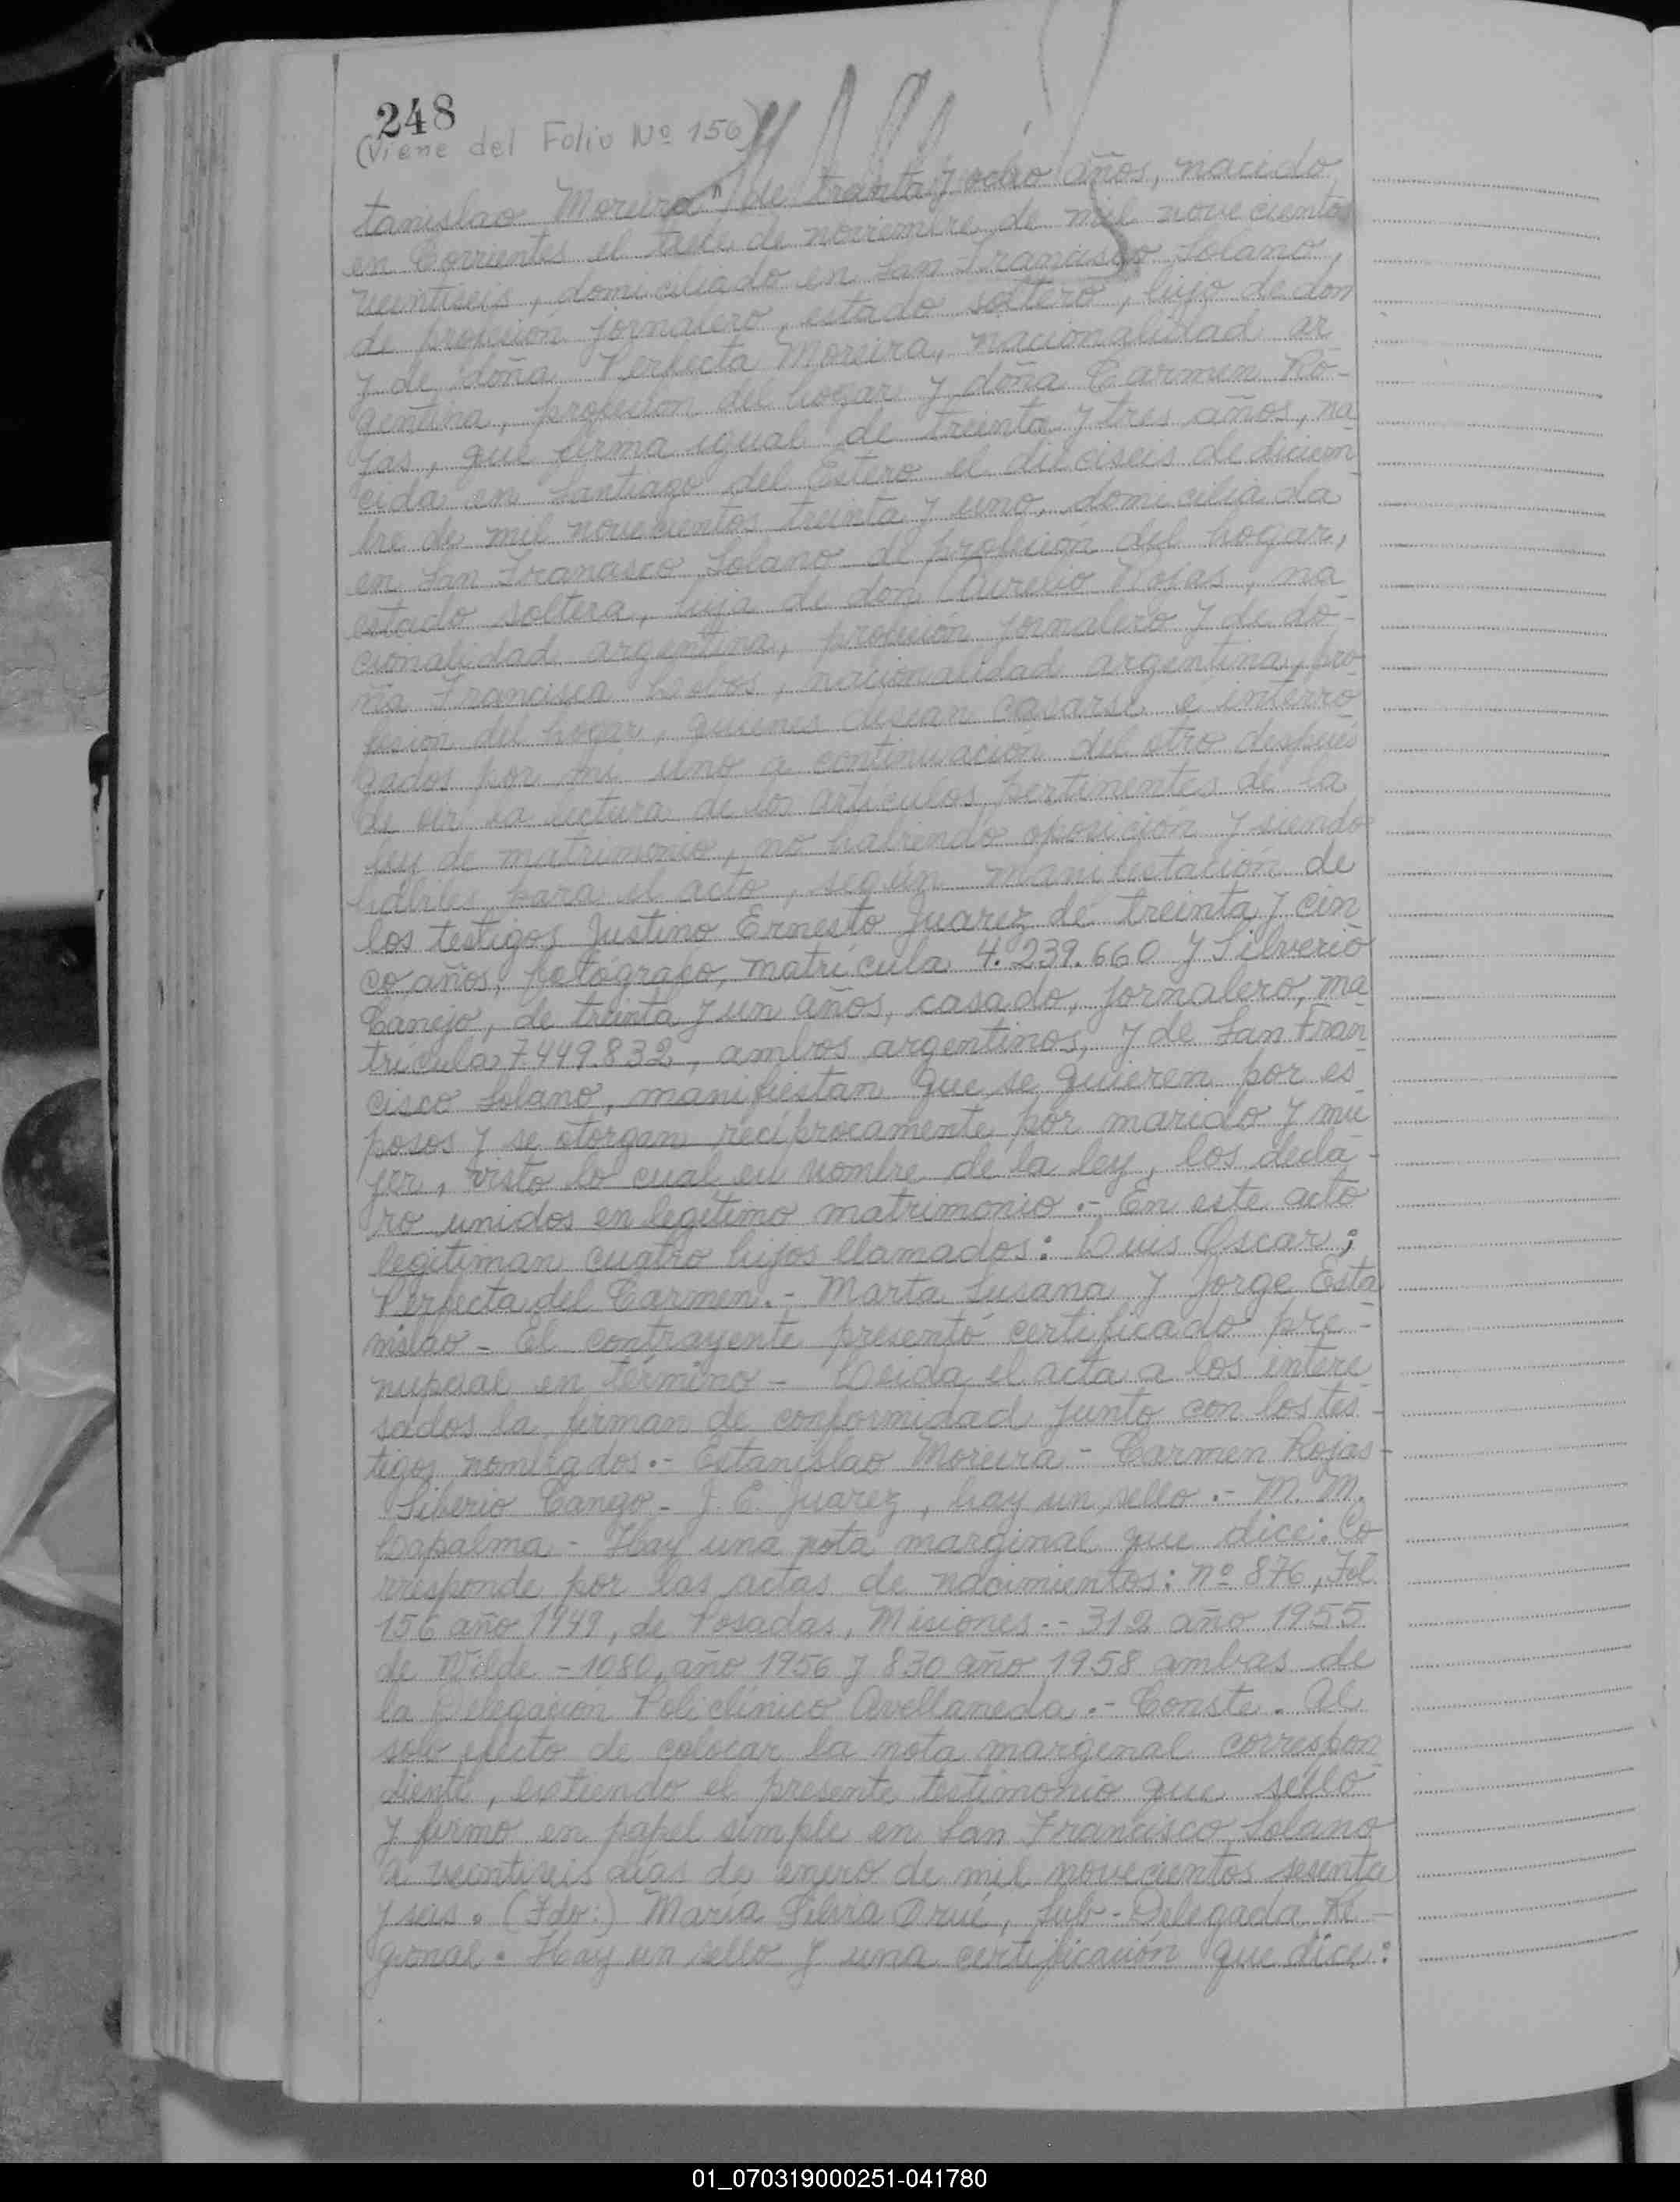 248
(Viene del Folio Nº 156)
tanislao Moreira" de treinta y ocho años, nacido
en Corrientes el trece de noviembre de mil novecientos
veintiseis, domiciliado en San Francisco Solano,
de profesión jornalero, estado soltero, hijo de don
y de doña Perfecta Moreira, nacionalidad ar
gentina, profesión del hogar y doña Carmen Ro-
jas, que firma igual de treinta y tres años, na
cida en Santiago del Estero el dieciseis de diciem
bre de mil novecientos treinta y uno, domiciliada
en San Francisco Solano de profesión del hogar,
estado soltera, hija de don Aurelio Rojas, na
cionalidad argentina, profesión jornalero y de do-
ña Francisca, nacionalidad argentina, pro
fesión del hogar, quienes desean casarse e interro
gados por mi uno a continuación del otro después
de oir la lectura de los artículos pertinentes de la
ley de matrimonio, no habiendo oposición y siendo
hábiles para el acto, según manifestación de
los testigos Justino Ernesto Juarez de treinta y cin
co años, fotógrafo, matrícula 4.239.660 y Silverio
Canejo, de treinta y un años, casado, jornalero, ma
trícula 7.449.832, ambos argentinos, y de San Fran
cisco Solano, manifiestan que se quieren por es
posos y se otorgan recíprocamente por marido y mu
jer, visto lo cual en nombre de la ley, los decla-
ro unidos en legítimo matrimonio.- En este acto
legitiman cuatro hijos llamados: Luis Oscar;
Perfecta del Carmen.- Marta Susana y Jorge Esta
nislao - El contrayente presentó certificado pre-
nupcial en término - Leida el acta a los intere
sados la firman de conformidad junto con los tes-
tigos nombrados.- Estanislao Moreira - Carmen Rojas-
Siberio Cango - J. E. Juarez, hay un sello.- M. M.
Lapalma - Hay una nota marginal que dice: Co
rresponde por las actas de nacimientos: nº 876, Fol.
156 año 1949, de Posadas, Misiones.- 312 año 1955
de Wilde - 1080, año 1956 y 830 año 1958 ambas de
la Delegación Policlínico Avellaneda.- Conste. Al
solo efecto de colocar la nota marginal correspon
diente, extiendo el presente testimonio que sello
y firmo en papel simple en San Francisco Solano
a veintiseis días de enero de mil novecientos sesenta
y seis. (Fdo:) María Silvia Orué, Sub-Delegada Re-
gional. Hay un sello y una certificación que dice:
01_070319000251-041780